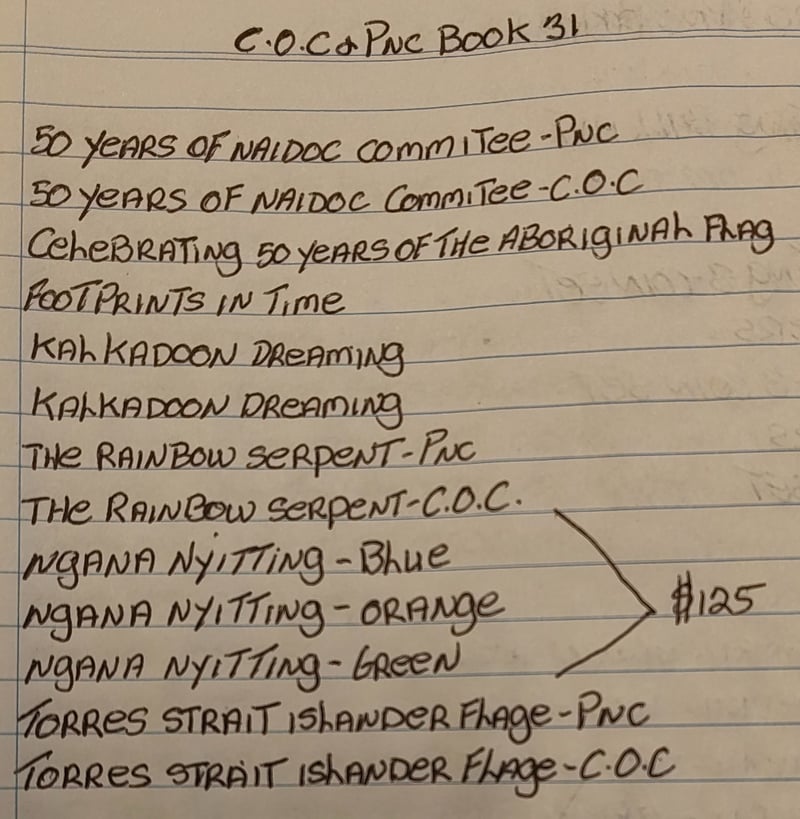 C.O.C & PNC BOOK 31
50 YEARS OF NAIDOC COMMITEE - PNC
50 YEARS OF NAIDOC COMMITEE - C.O.C
CELEBRATING 50 YEARS OF THE ABORIGINAL FLAG
FOOTPRINTS IN TIME
KALKADOON DREAMING
KALKADOON DREAMING
THE RAINBOW SERPENT - PNC
THE RAINBOW SERPENT - C.O.C.
NGANA NYITTING - BLUE
NGANA NYITTING - ORANGE
$125
NGANA NYITTING - GREEN
TORRES STRAIT ISLANDER FLAGE - PNC
TORRES STRAIT ISLANDER FLAGE - C.O.C